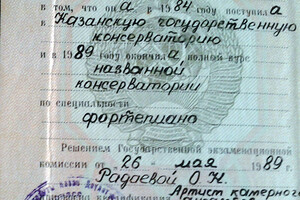 в том, что он а в 1984 году поступил а
в Казанскую государственную
консерваторию
и в 1989 окончил а полный курс
названной
консерватории
по специальности
фортепиано
Решением Государственной экзаменационной
комиссии от 26 мая 1989 г.
Радаевой О. Н.
Артист камерного